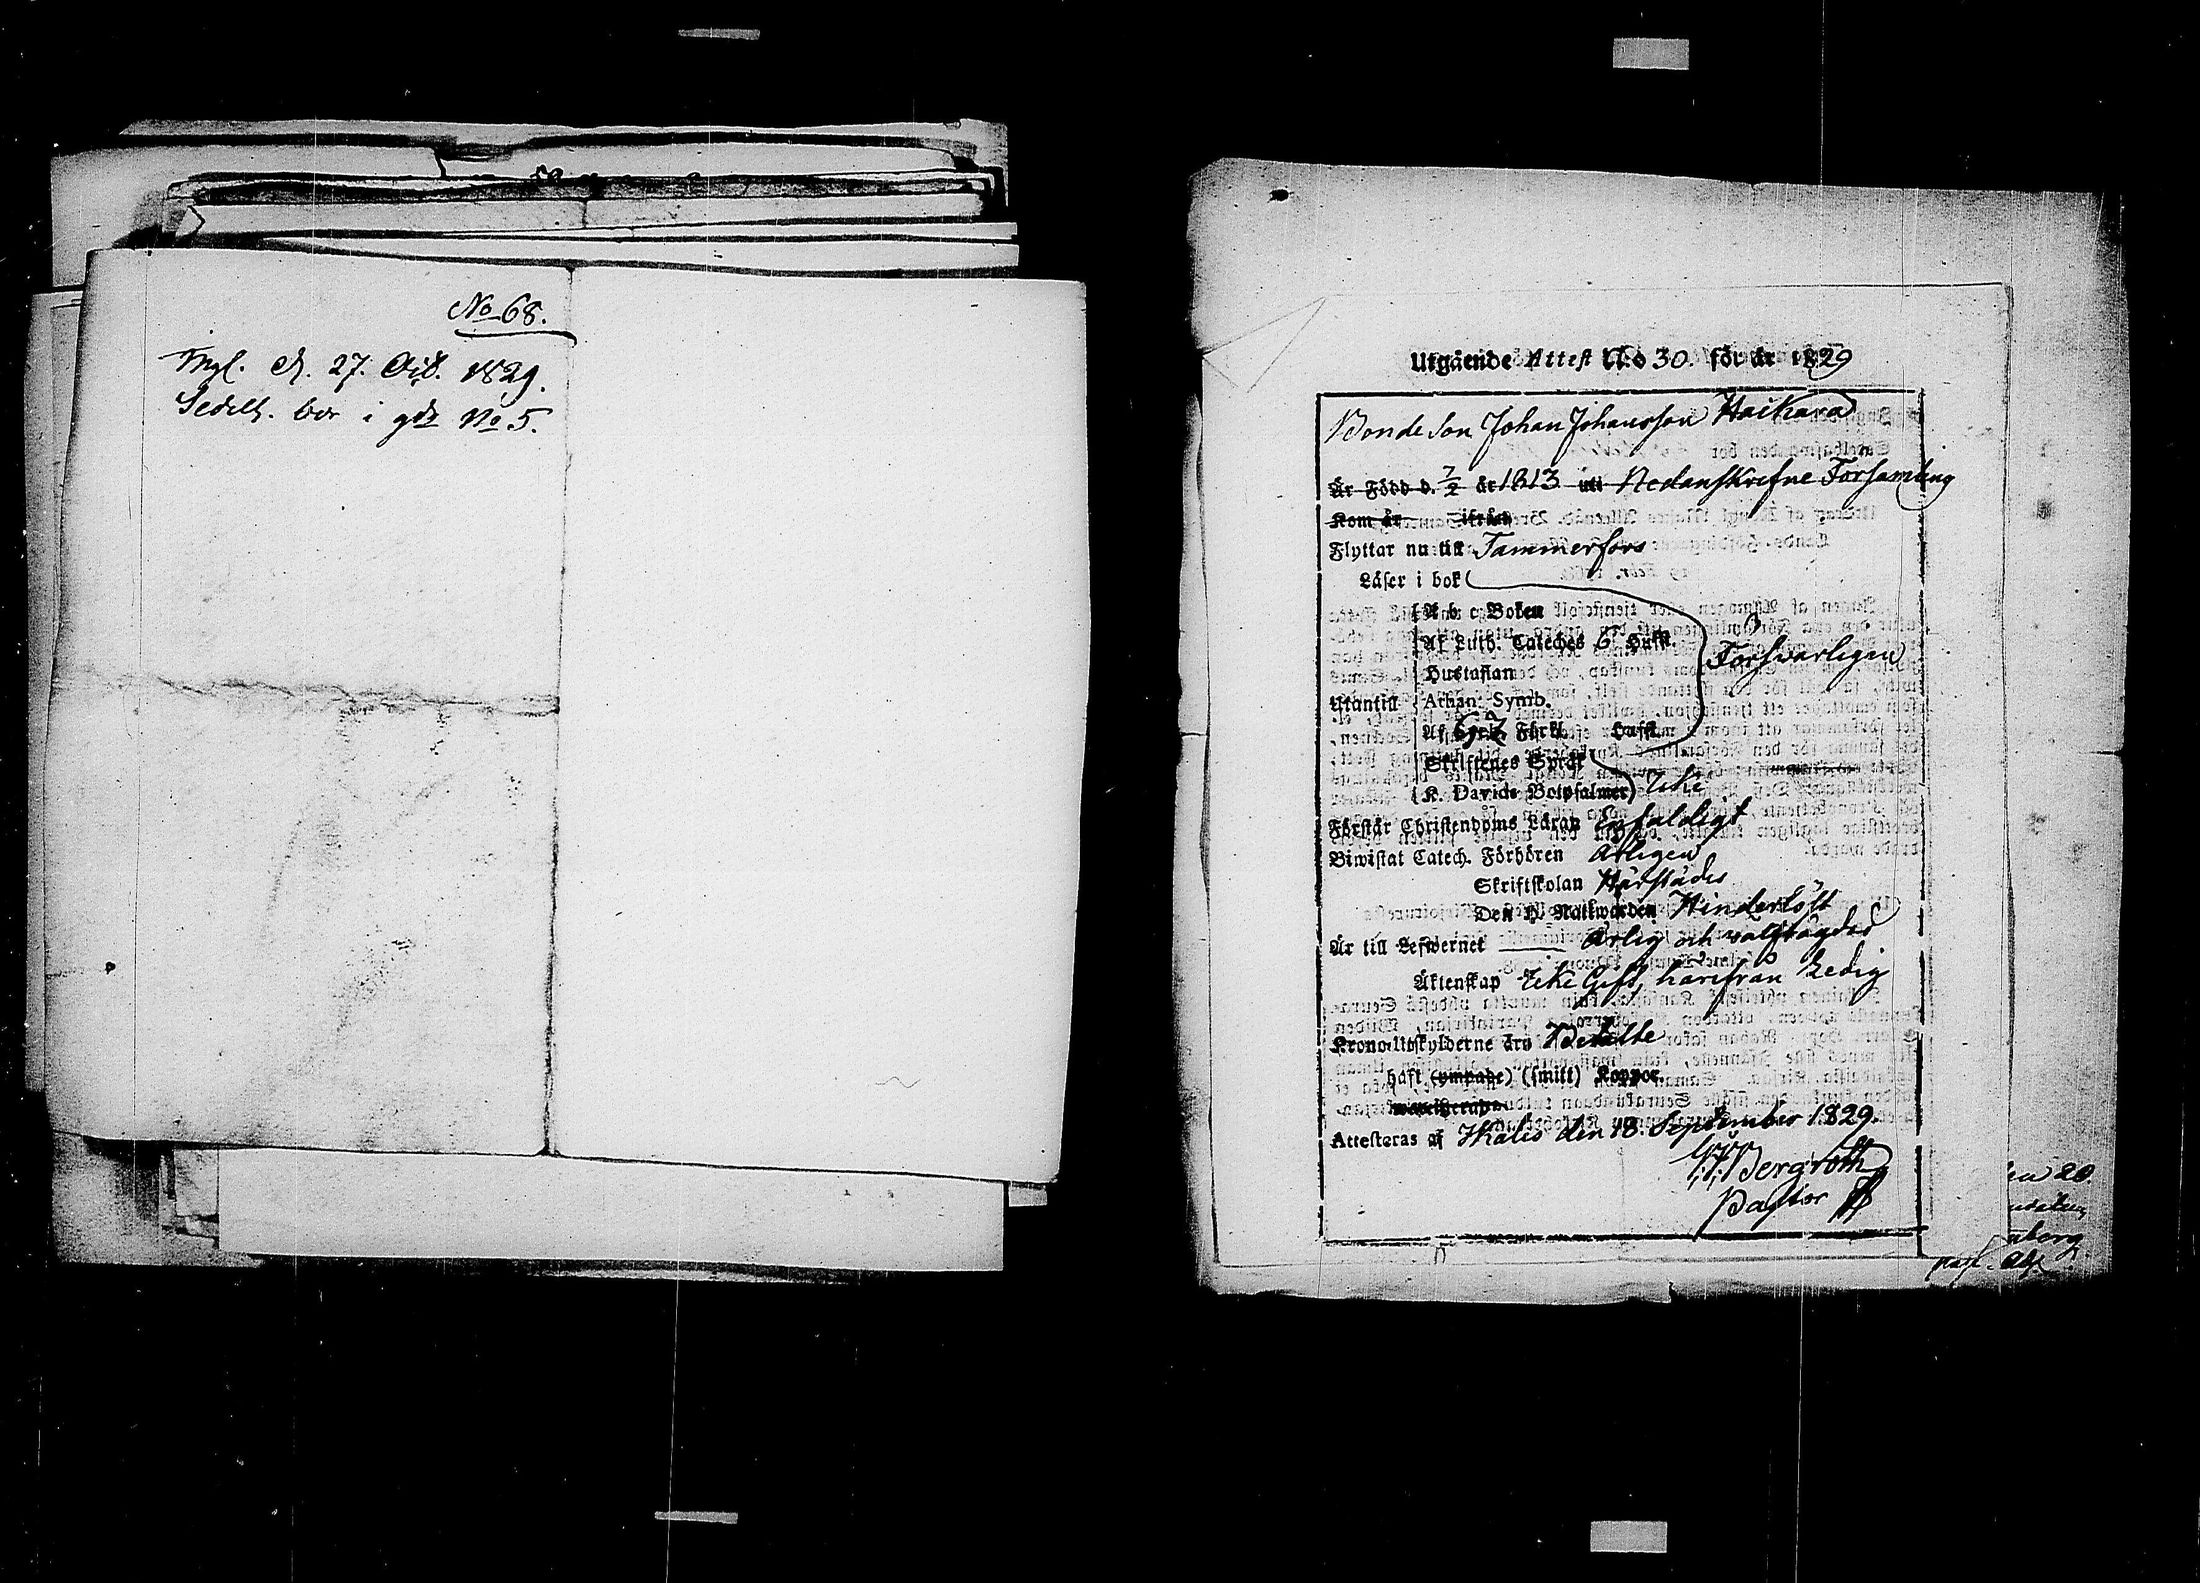 No 68.
d. 27. Oct. 1829.
bor i gdn No 5.
Utgående Attest No 30. för år 1829
Bonde Son Johan Johansson Haikara
Är Född d. 7/2 år 1813 uti Nedanskrefne Församling
Kom år ifrån
Flyttar nu till Tammerfors
Läser i bok
A b c Boken
Af Luth. Cateches 6 Hufst.
Försvarligen
Hustaflan
Utantill Athan. Symb.
Af Förkl. Hufst.
Skriftenes Språk
K. Davids Botpsalmer Icke
Förstår Christendoms Läran Enfaldigt
Biwistat Catech. Förhören Årligen
Skriftskolan Härstädes
Den H. Nattwarden Hinderlöst
Är till Lefwernet Ärlig och wälfrägdad
Äktenskap Icke Gift, härifrån Ledig
Krono-Utskylderne äro Betalte
haft (ympade) (smitt) Koppor.
Attesteras af Ikalis den 18 September 1829.
Bergroth
Pastor